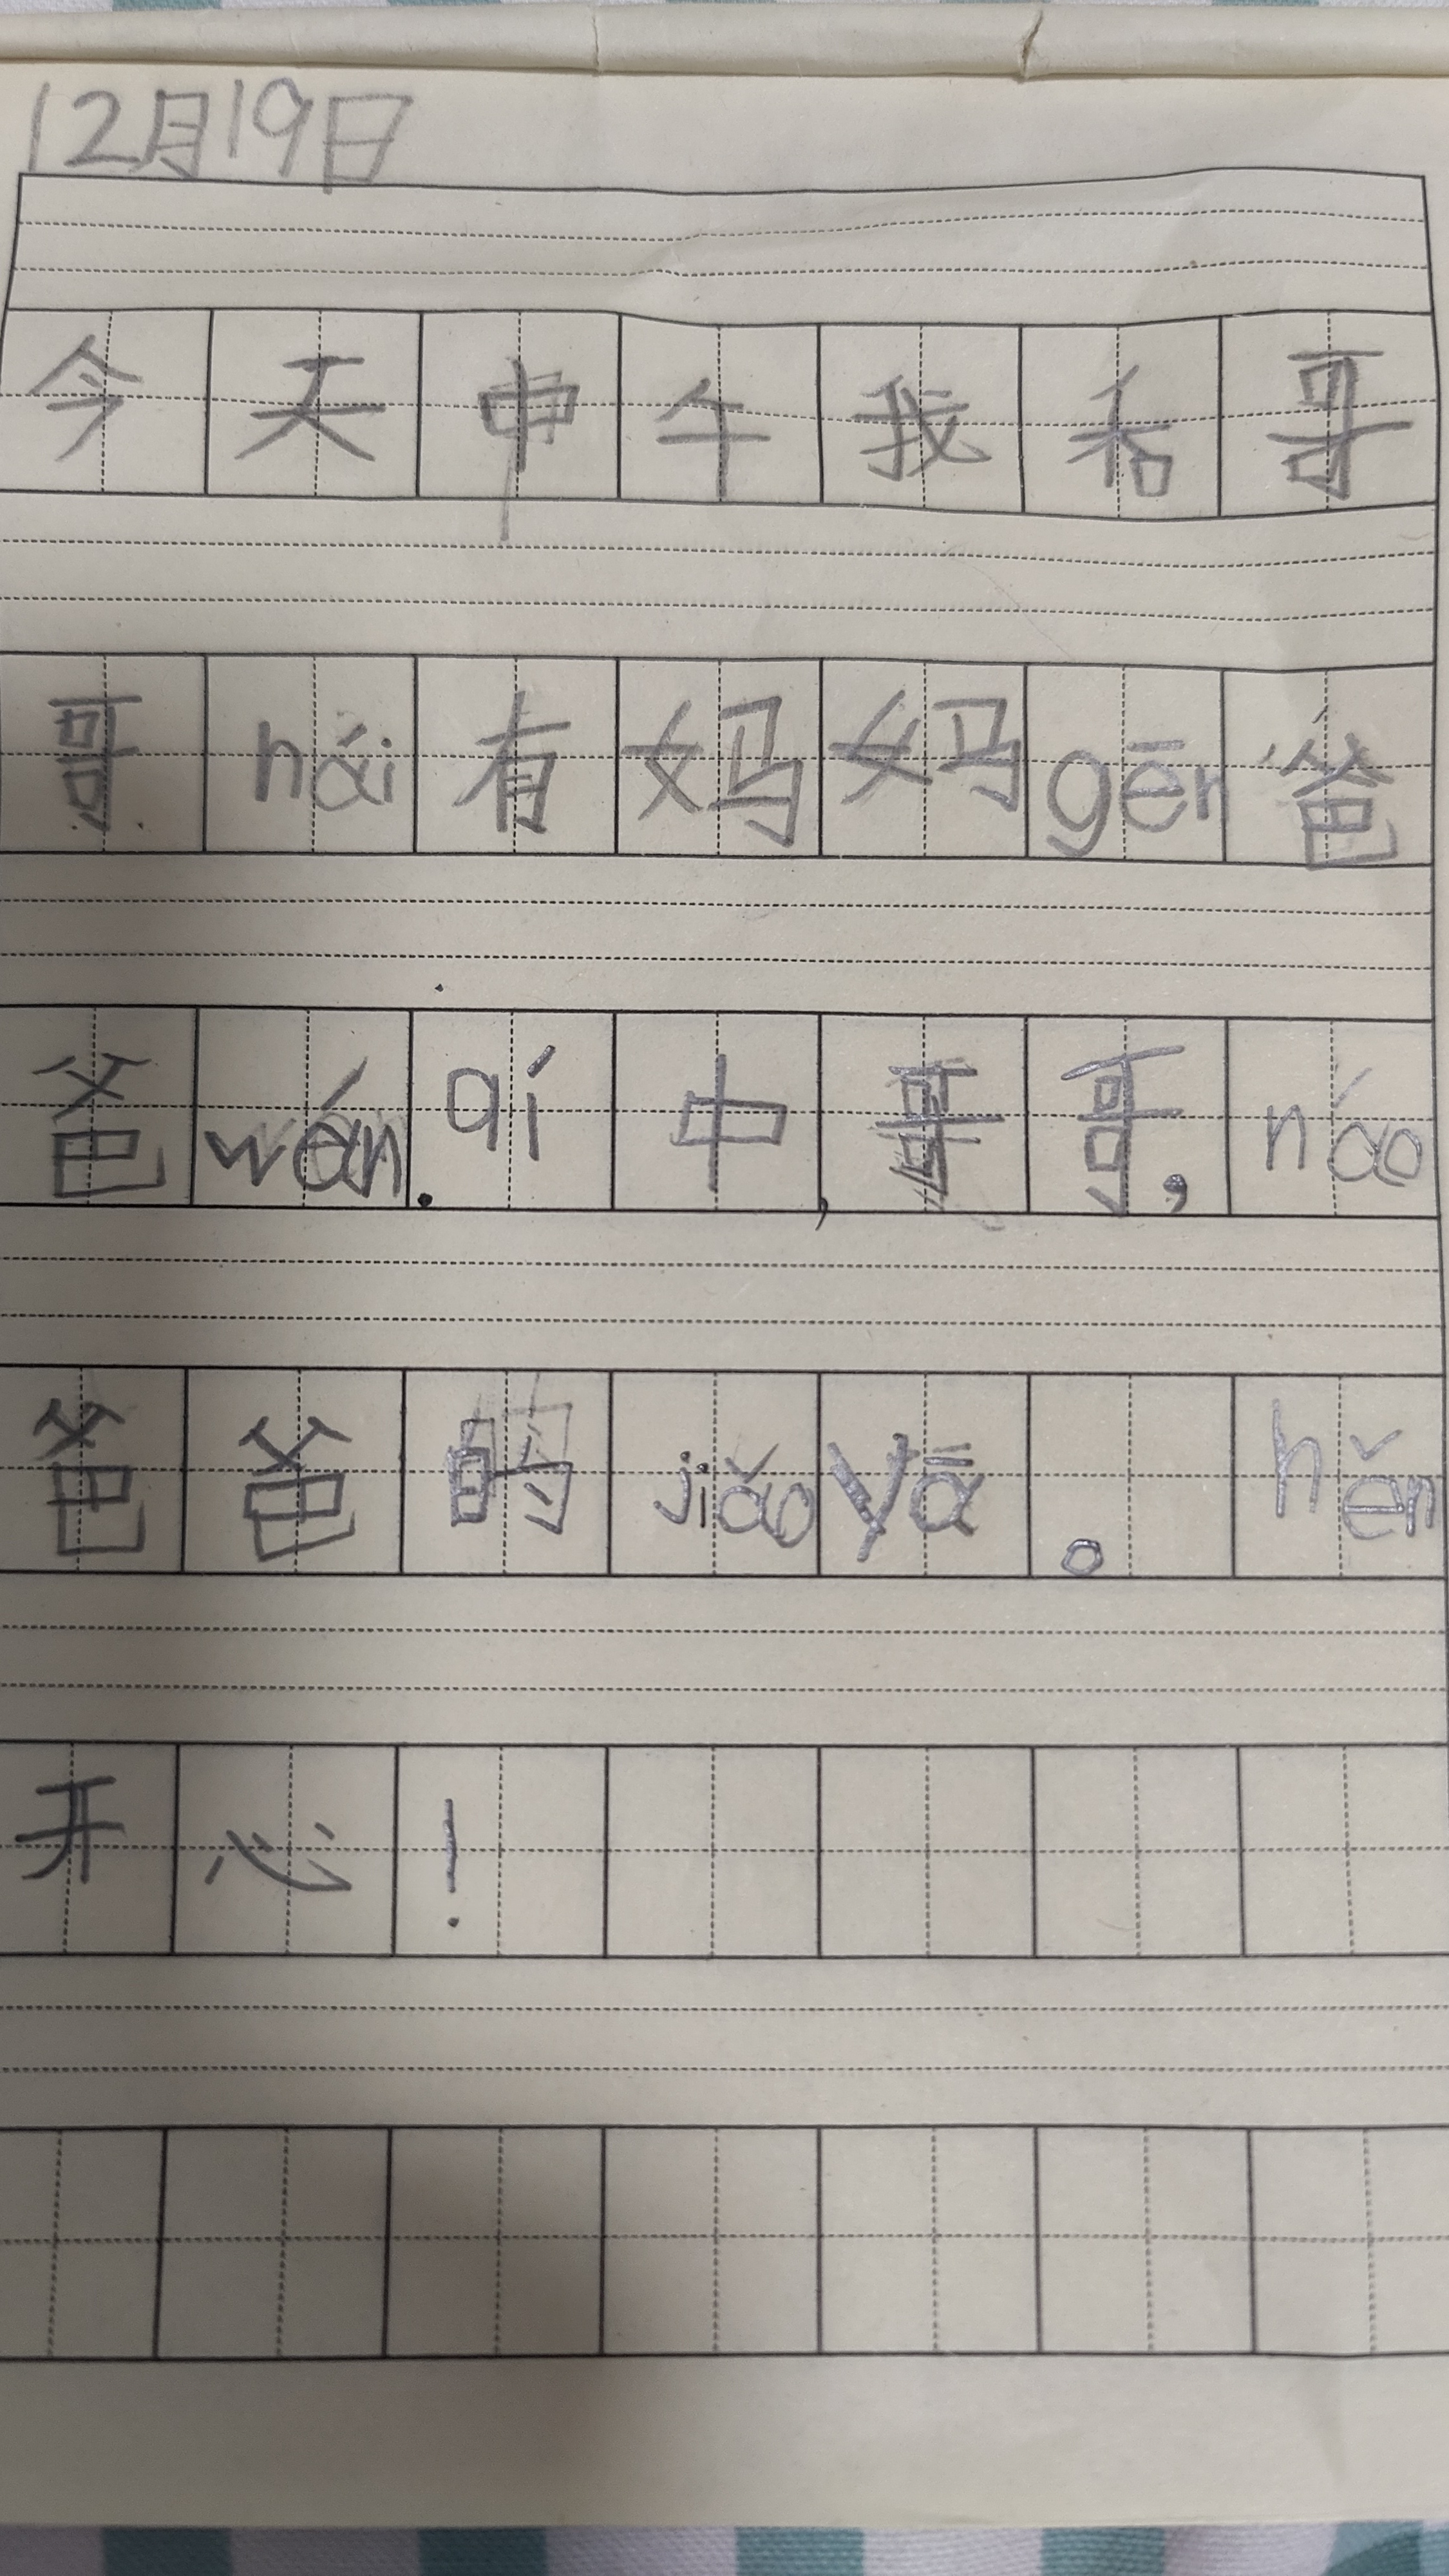 12月19日
今天中午我和哥
哥hái有妈妈gēn爸
爸wán.qí中,哥哥,náo
爸爸的jiǎoyā。hěn
开心!